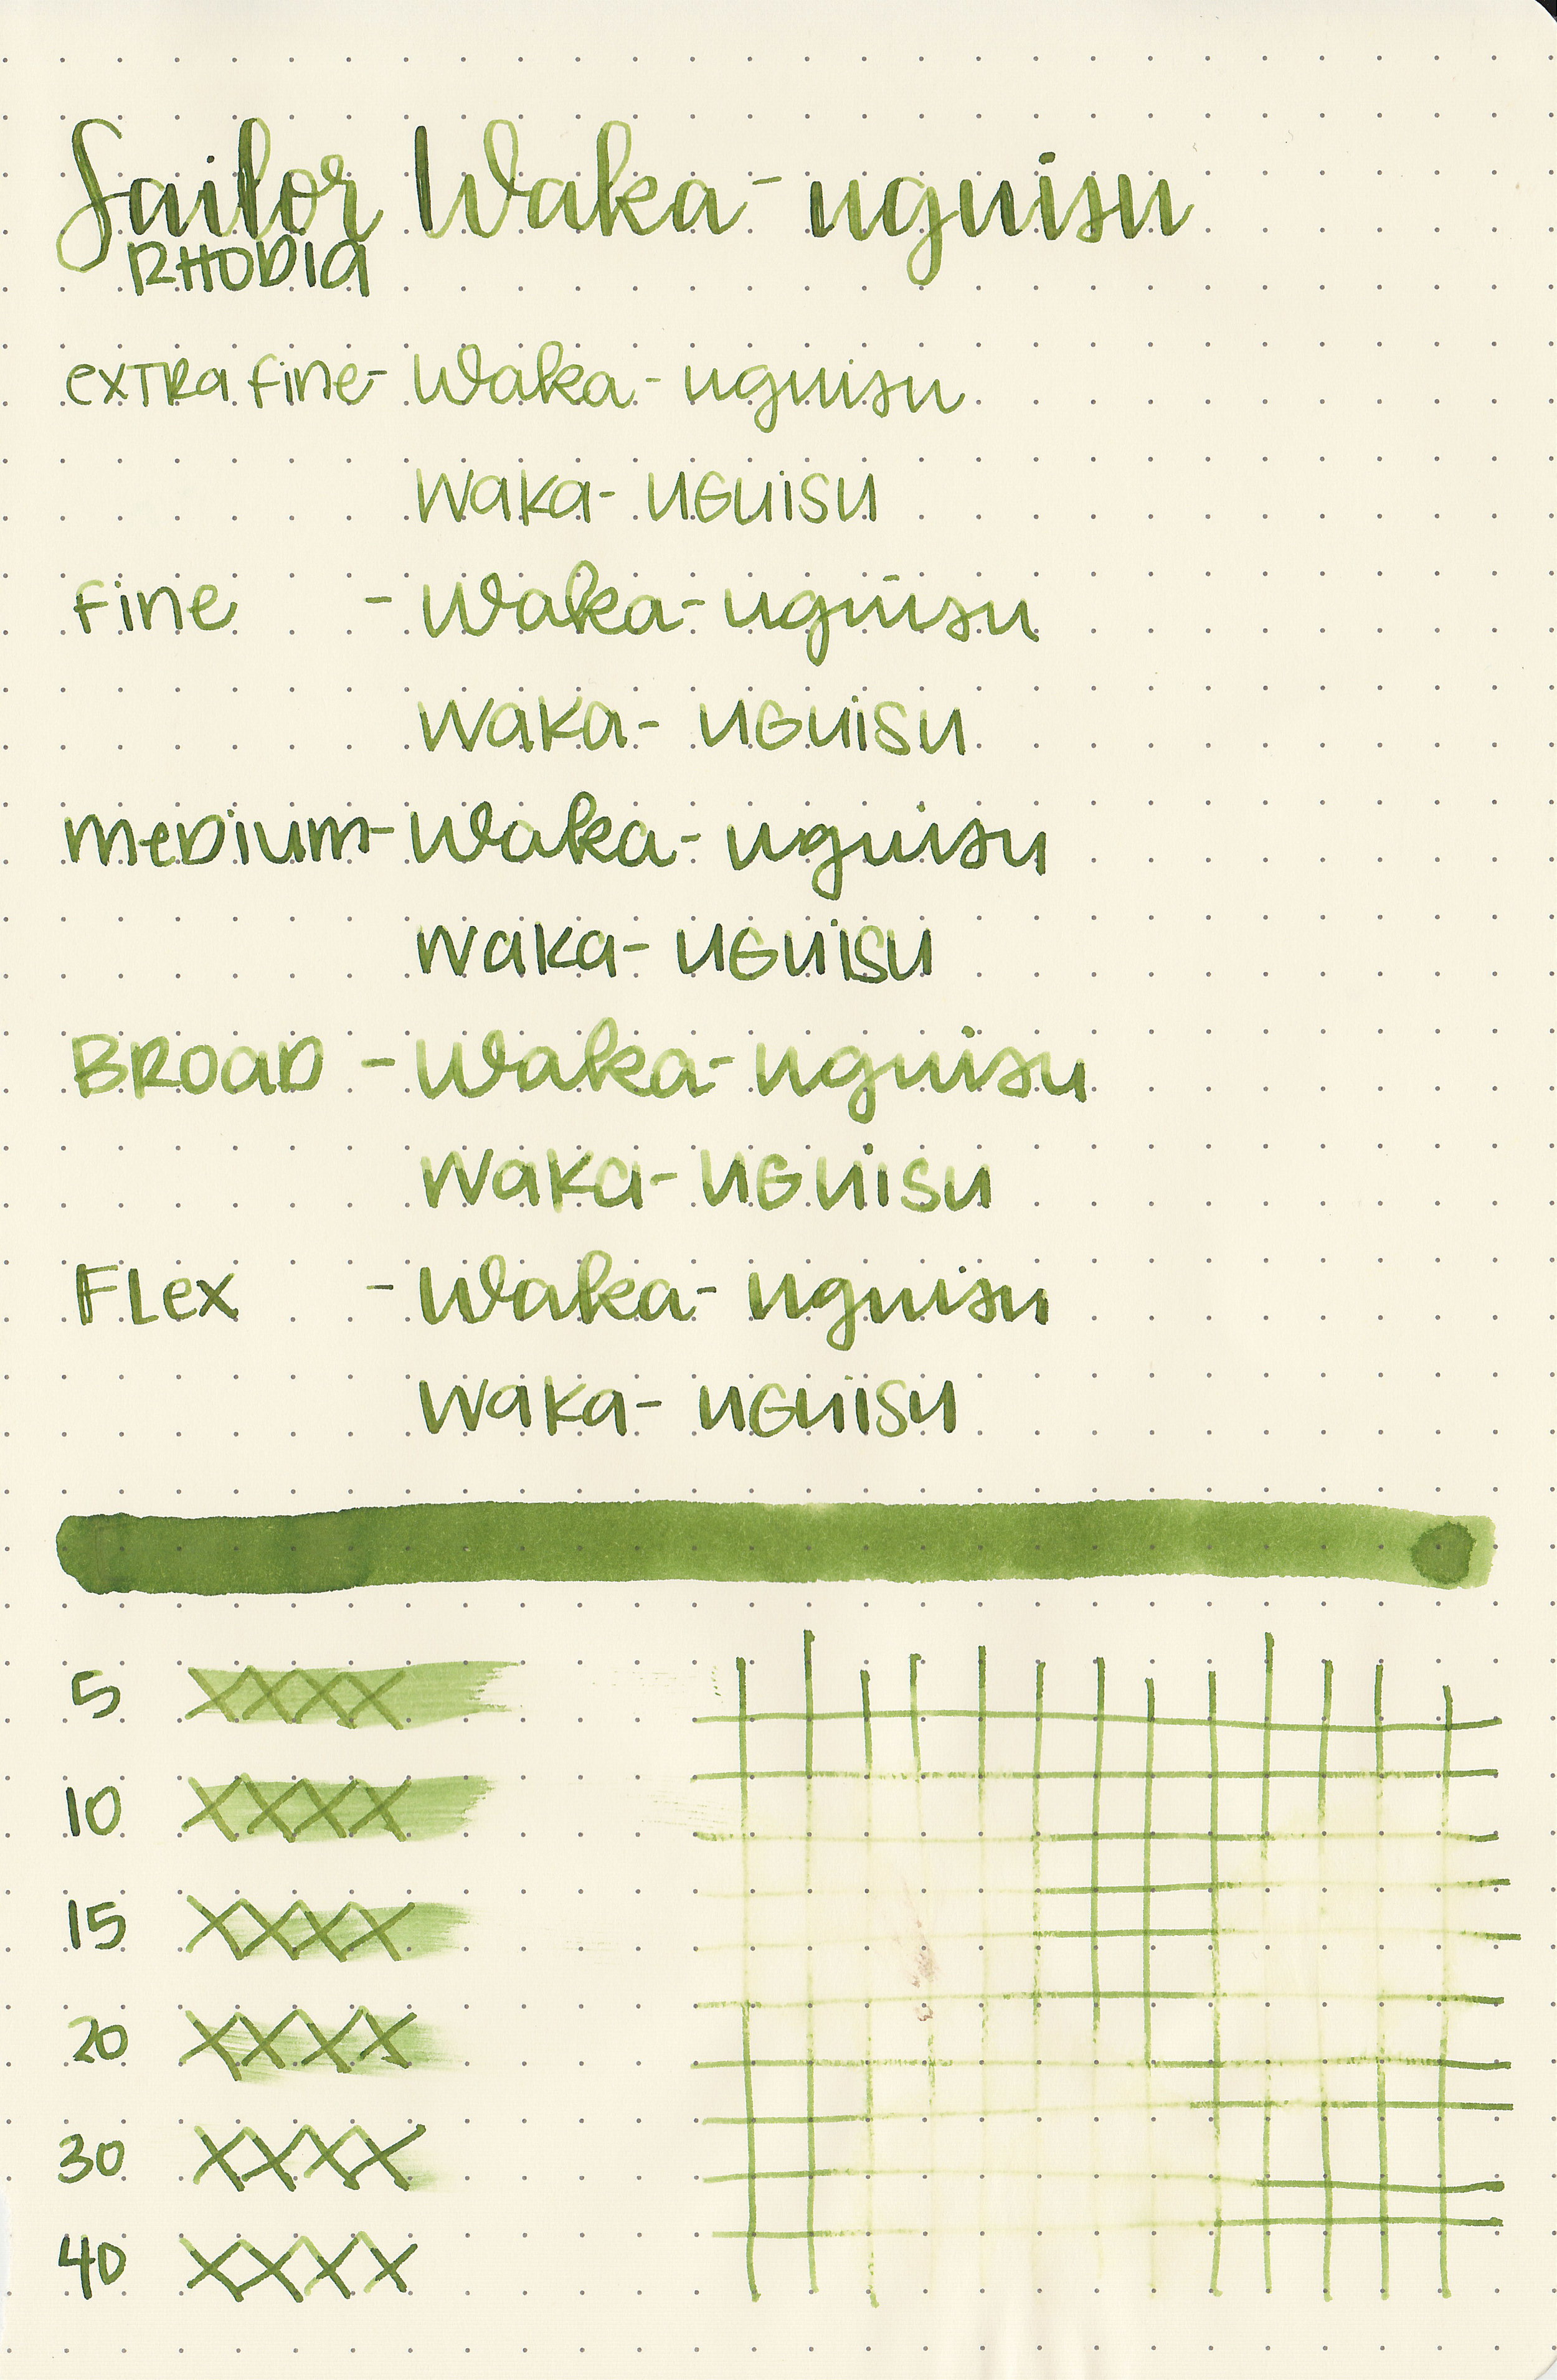 Sailor Waka-uguisu
RHODIA
exTRa fine- Waka-uguisu
Waka-UGUiSU
fine - Waka-uguisu
Waka-UGUiSU
MeDiUM- Waka-uguisu
Waka-UGUiSU
BROaD - Waka-uguisu
Waka-UGUiSU
FLex - Waka-uguisu
Waka-UGUiSU
5 XXXX
10 XXXX
15 XXXX
20 XXXX
30 XXXX
40 XXXX